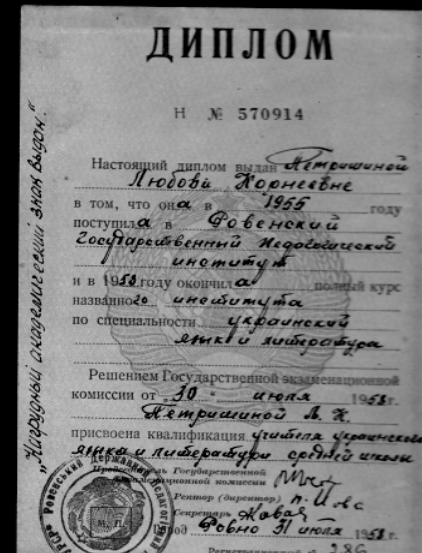 ДИПЛОМ
Н № 570914
Настоящий диплом выдан Петришиной
Любови Корнеевне
в том, что она в 1955 году
поступила в Ровенский
Государственный Педагогический
институт
и в 1958 году окончила полный курс
названного института
по специальности украинский
язык и литература
Решением Государственной экзаменационной
комиссии от 30 " июля 1958 г.
Петришиной Л. К.
присвоена квалификация учителя украинского
языка и литературы средней школы
Председатель Государственной
экзаменационной комиссии
Ректор (директор)
Секретарь
Город Ровно 31 июля 1958 г.
Регистрационный 286
„Нагрудный академический знак выдан."
Ровенський державний
М. П.